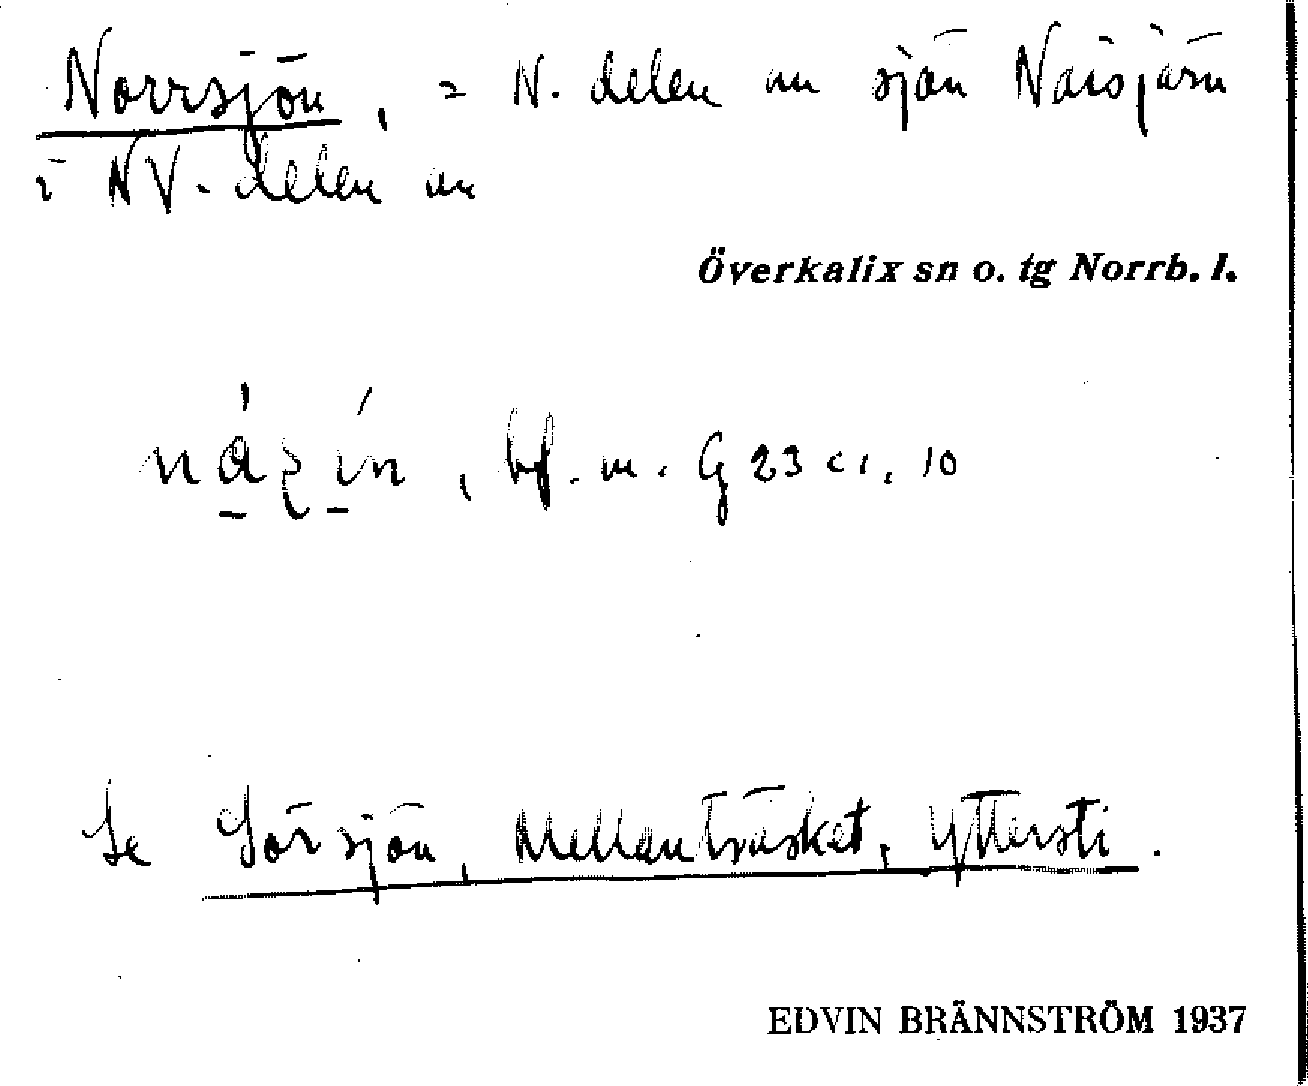 Norrsjön, = N. delen av sjön Naisjärv
i NV. delen av
Överkalix sn o. tg Norrb. l.
bf. m. G 23 c 1, 10
Se Sörsjön, Mellanträsket, Yttersti.
EDVIN BRÄNNSTRÖM 1937